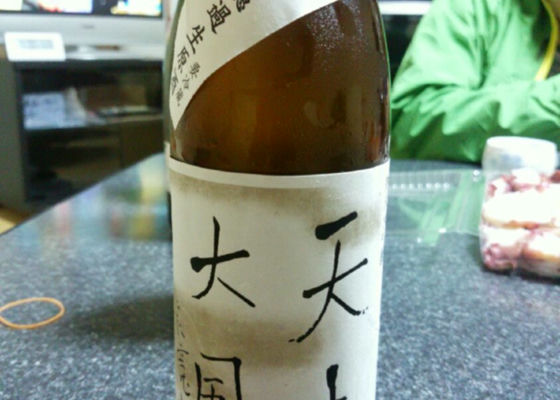 過生原酒
要冷蔵
天上
大風